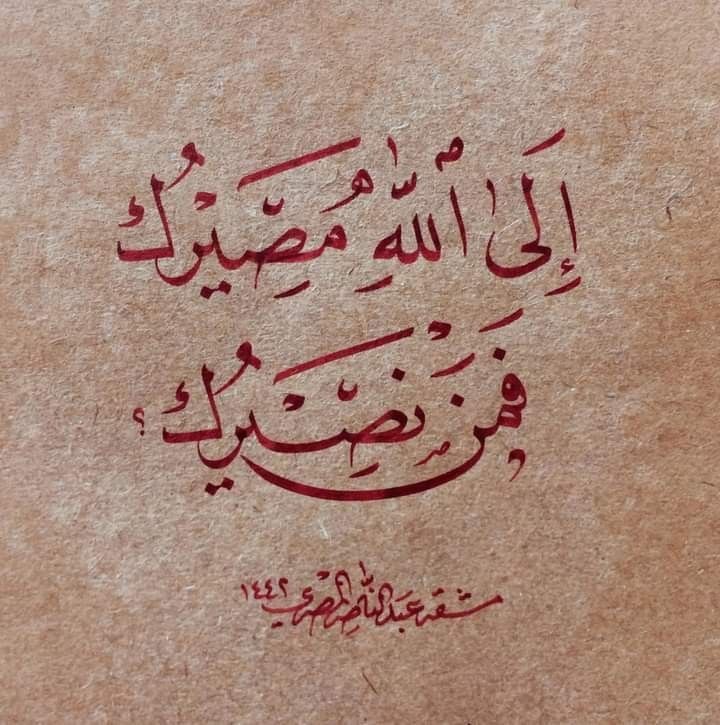 إِلَىٰ ٱللَّهِ مَصِيْرُكَ
فَمَنْ نَصِيْرُكَ؟
مشقه عبد الناصر المصري ١٤٤٢